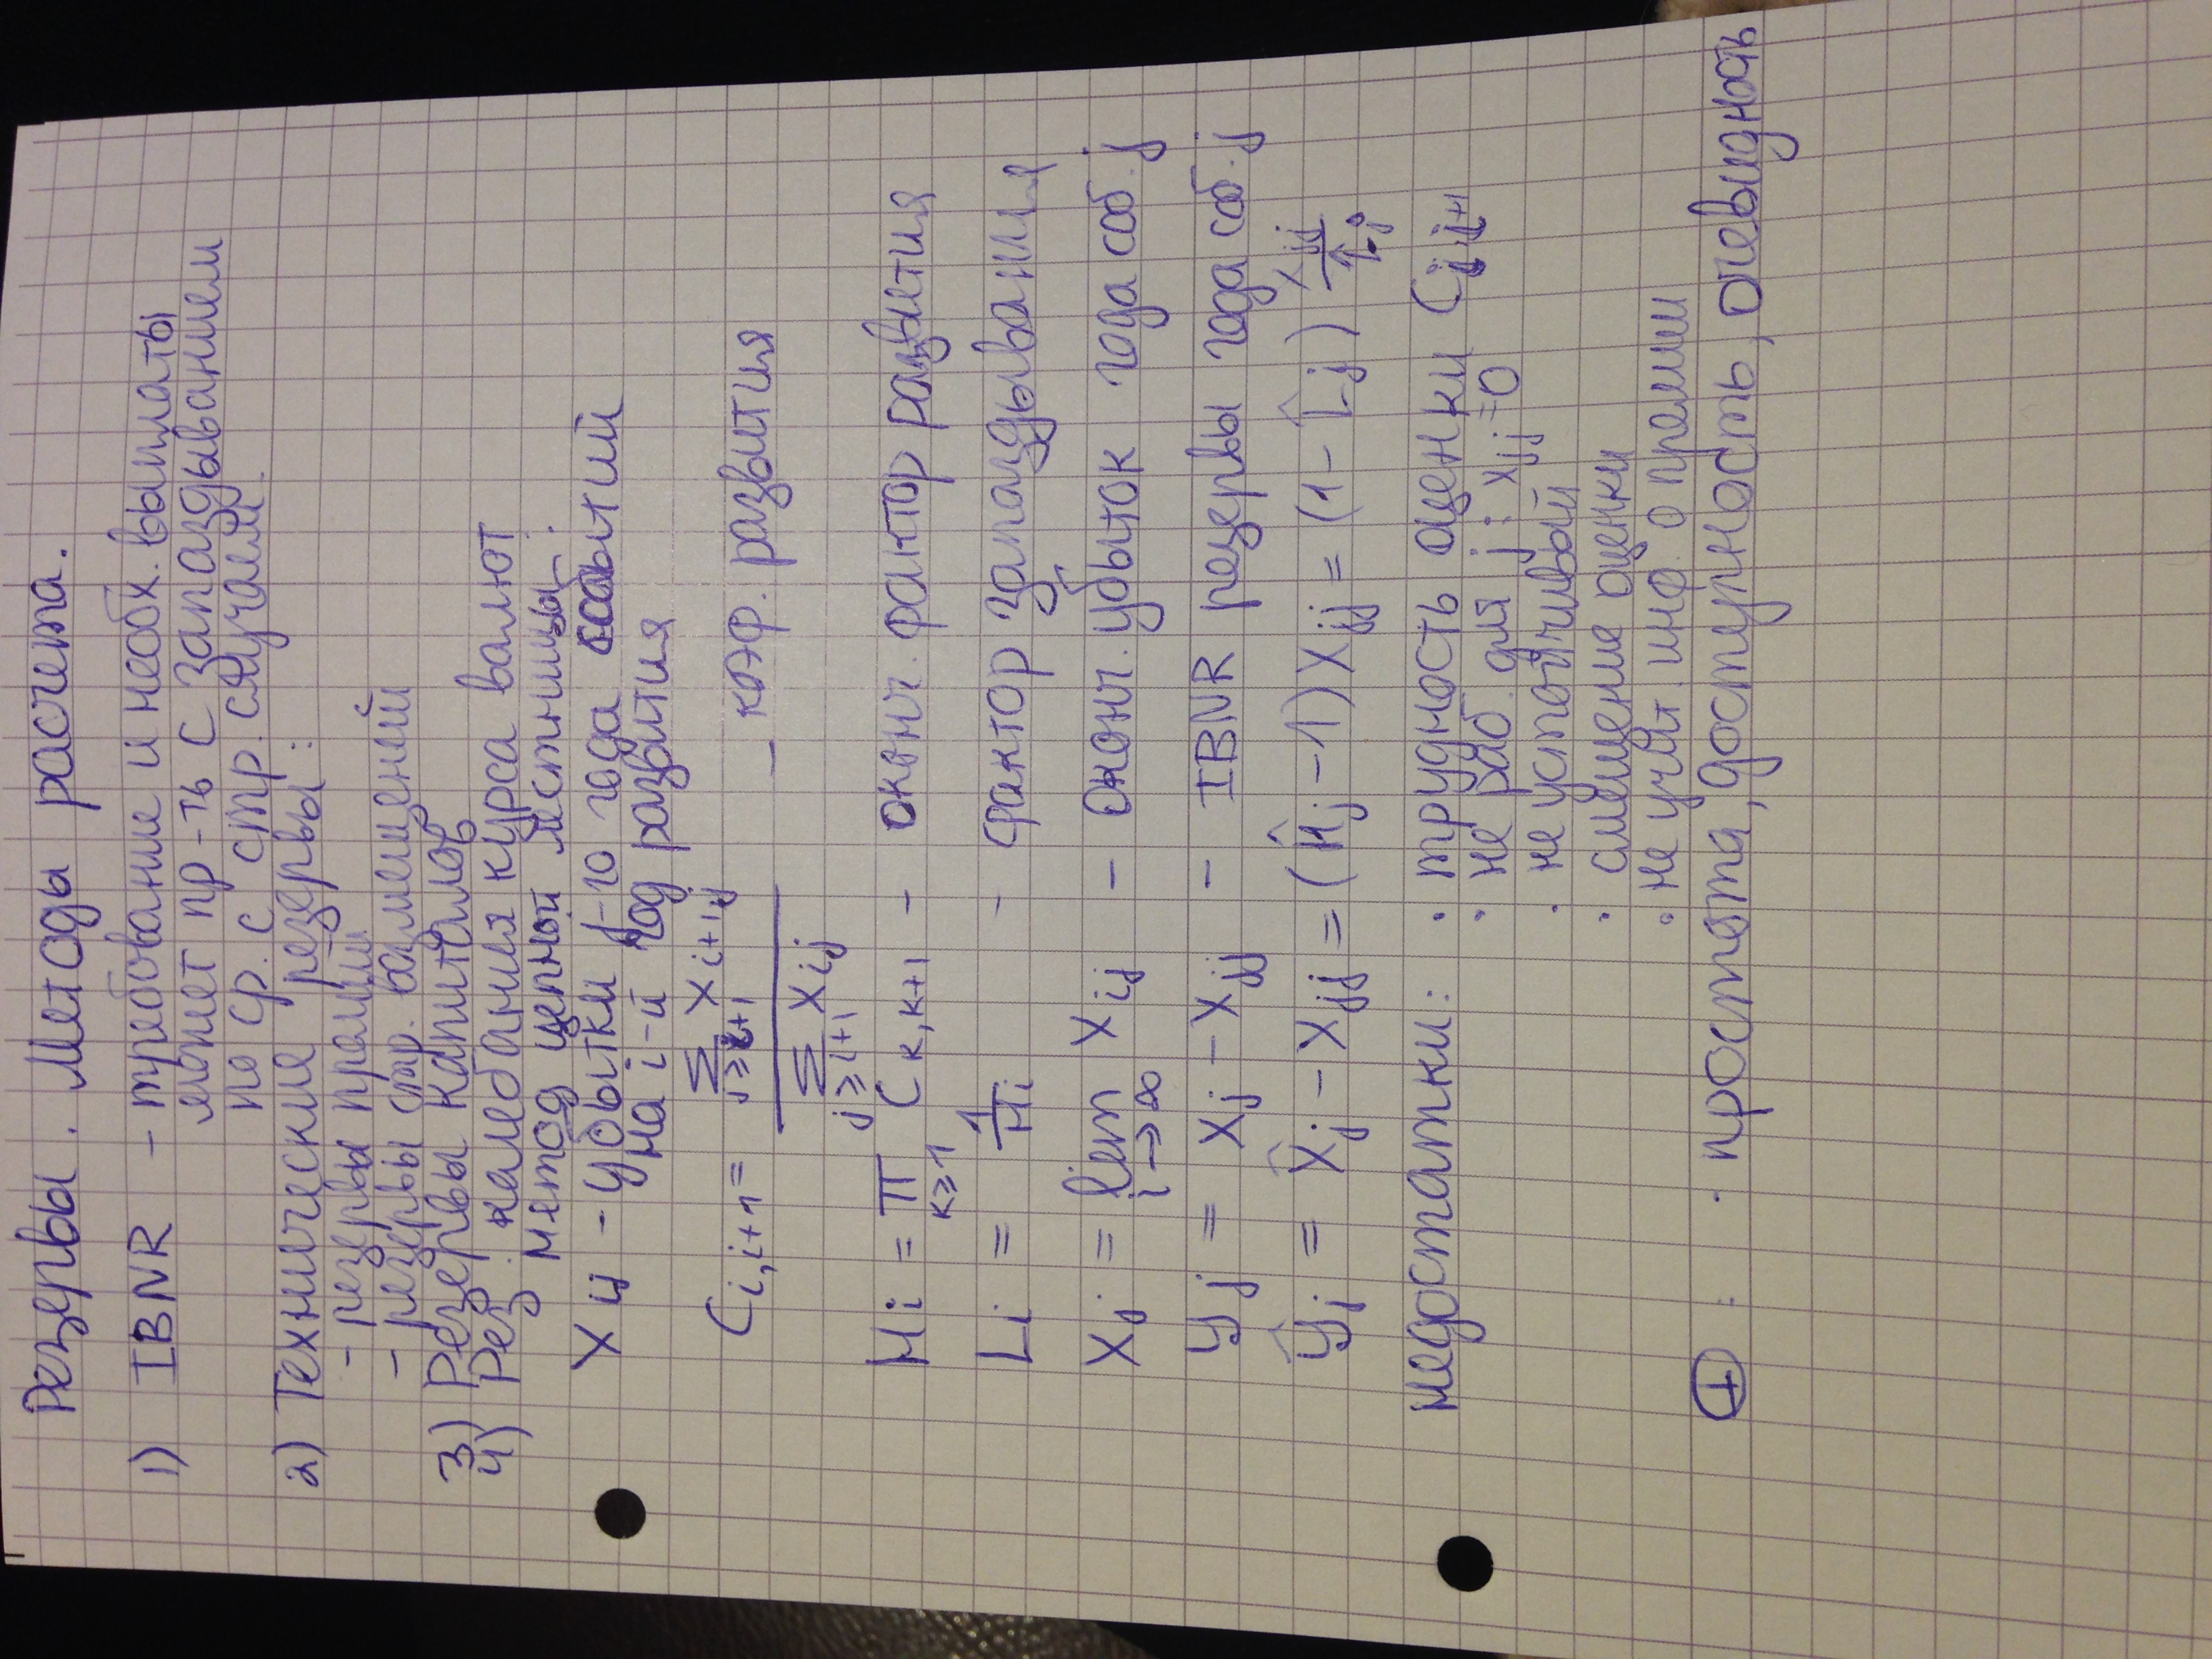 Резервы. Методы расчета.
1) IBNR - требование и необх. выплаты
может пр-ть с запаздыванием
по ср. с стр. случаем.
2) Технические резервы:
- резервы премий
- резервы стр. возмещений
3) Резервы капиталов
4) Рез. колебания курса валют
метод цепной лестницы.
X ij - убытки j-го года событий
на i-й год развития
C i,i+1 = ∑ j≥i+1 X i+1,j / ∑ j≥i+1 X ij - коэф. развития
Mi = П k≥i C k,k+1 - оконч. фактор развития
Li = 1/Mi - фактор запаздывания
Xj = lim i→∞ X ij - оконч. убыток года соб. j
Yj = Xj - Xjj - IBNR резервы года соб. j
Ŷj = X̂j - Xjj = (M̂j - 1) Xjj = (1 - L̂j) Xjj / L̂j
недостатки: · трудность оценки C j,j+1
· не раб. для j: xjj = 0
· не устойчивый
· смещение оценки
· не учит. инф. о премии
⊕ : · простота, доступность, очевидность